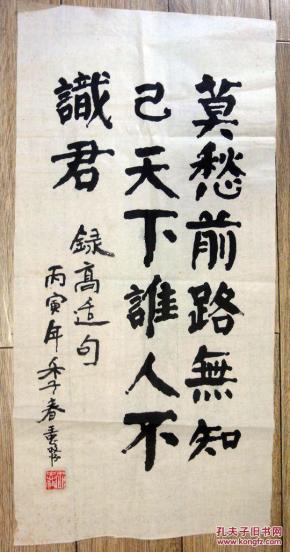 莫愁前路無知
己天下誰人不
識君
録高适句
丙寅年季春
孔夫子旧书网
www.kongfz.com